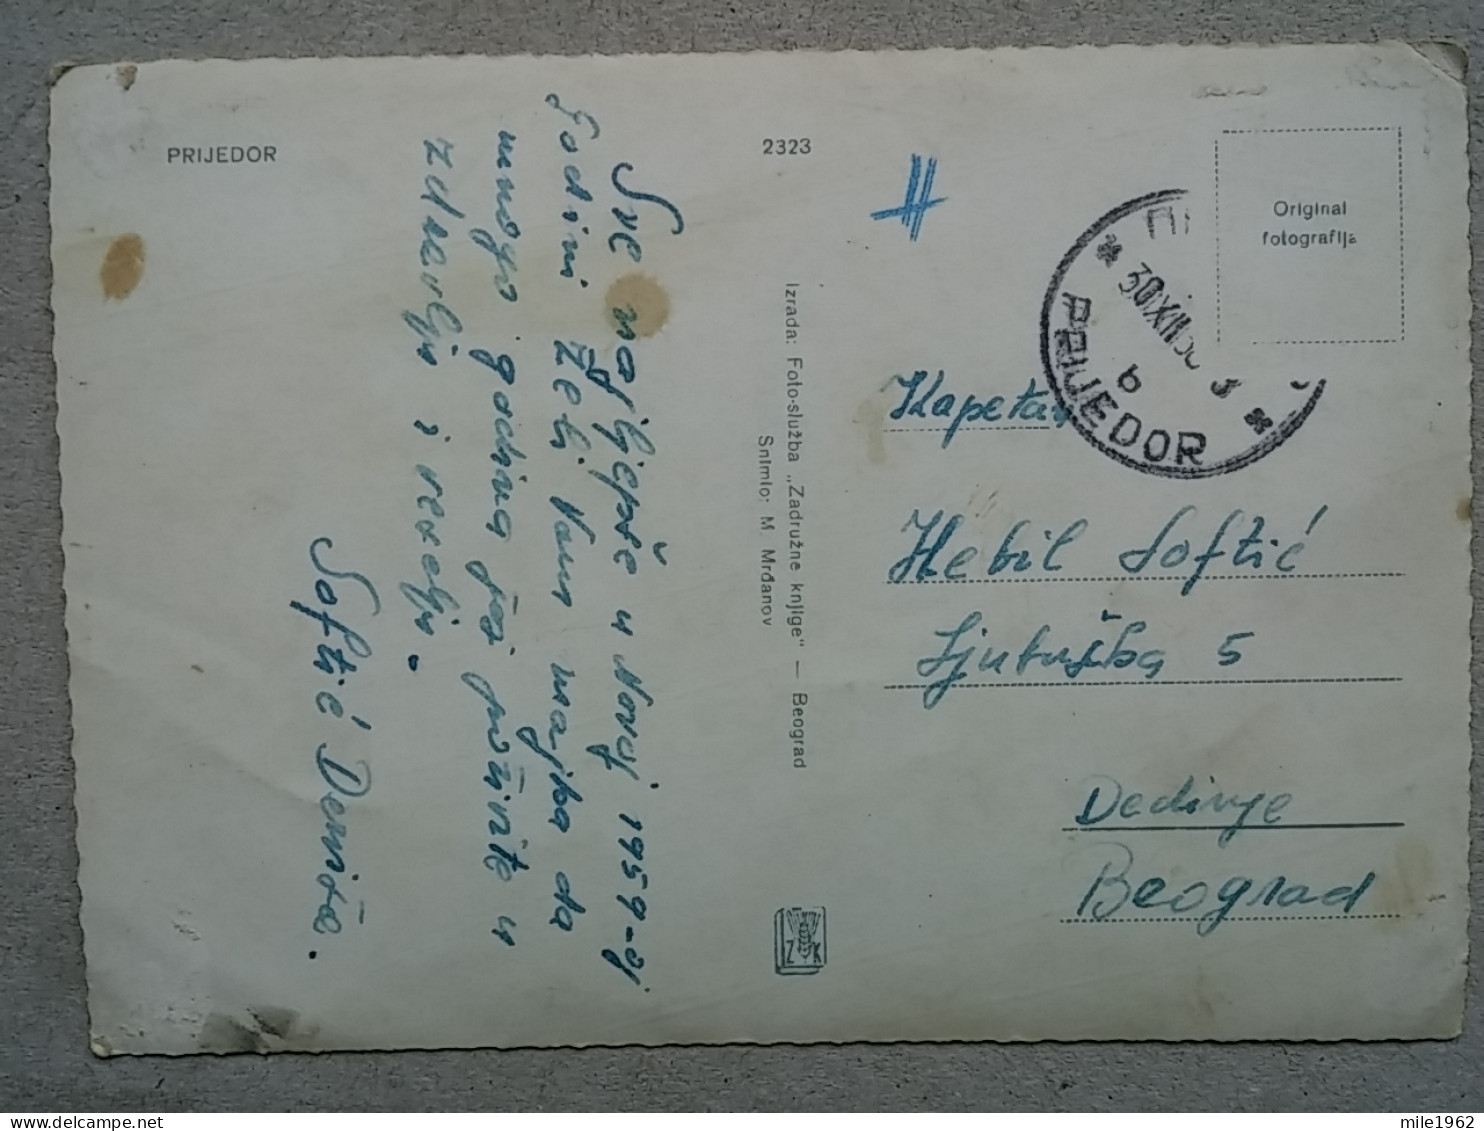 PRIJEDOR
2323
Original
fotografija
Sve najljepše u Novoj 1959-oj
godini želi Vam majka da
mnogo godina još poživite u
zdravlju i veselju.
Softić Derviša.
Izrada: Foto-služba „Zadružne knjige" — Beograd
Snimio: M. Mrđanov
ZK
30 XII 58
b
PRIJEDOR
Kapetan
Hebil Softić
Ljutuška 5
Dedinje
Beograd
mile1962